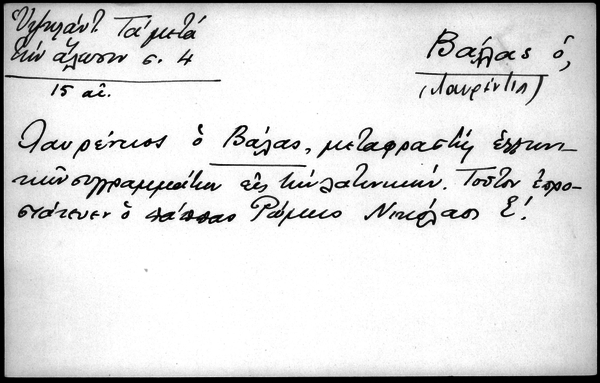 Ὑψηλάντ Τά μετά
τήν ἅλωσιν σ. 4
15 αἰ.
Βάλας ὁ,
(Λαυρέντιος)
Λαυρέντιος ὁ Βάλας, μεταφραστής ἑλληνι-
κῶν συγγραμμάτων εἰς τήν λατινικήν. Τοῦτον ἐπρο-
στάτευεν ὁ πάπας Ρώμης Νικόλαος Ε΄.